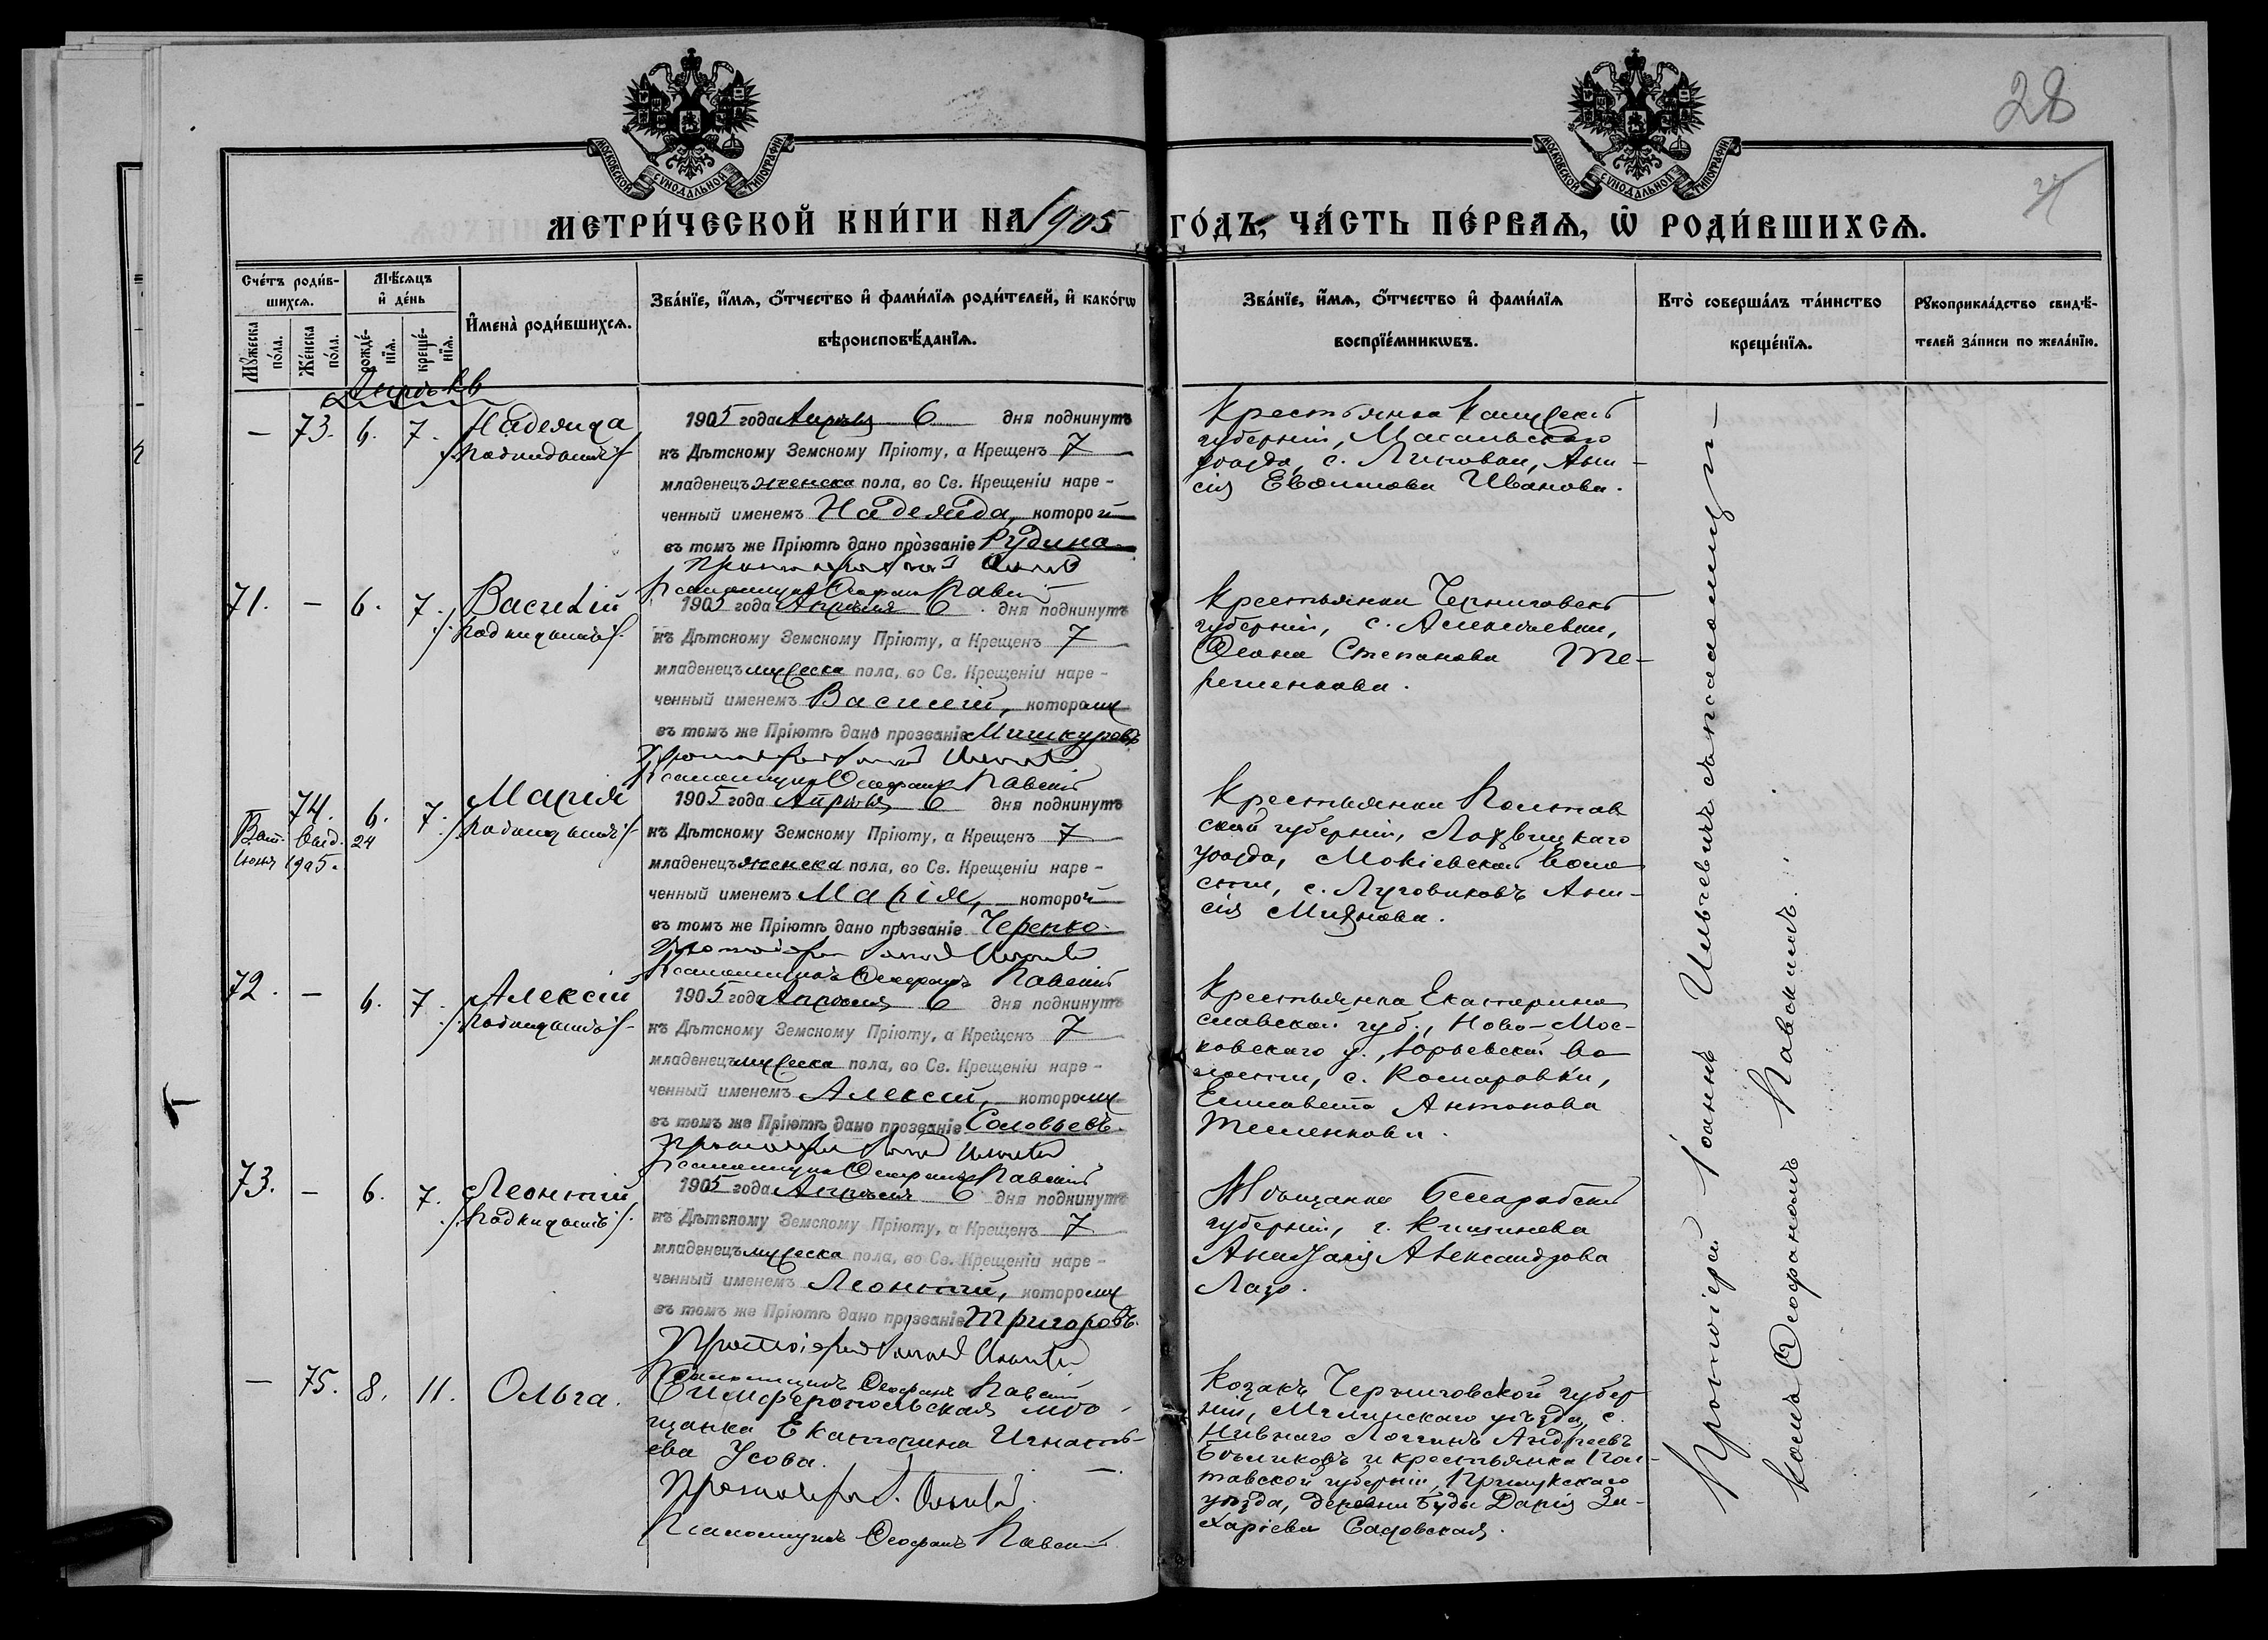 28
27
МОСКОВСКОЙ СѴНОДАЛЬНОЙ ТИПОГРАФІИ
МОСКОВСКОЙ СѴНОДАЛЬНОЙ ТИПОГРАФІИ
МЕТРИ́ЧЕСКОЙ КНИ́ГИ НА 1905 ГО́ДЪ, ЧА́СТЬ ПЕ́РВАѦ, Ѽ РОДИ́ВШИХСѦ.
Сче́тъ роди́в-
шихсѧ.
Мꙋ́жеска по́ла.
Же́нска по́ла.
Мѣ́сѧцъ
и҆ де́нь
рожде́-
нїѧ.
креще́-
нїѧ.
И҆мена̀ роди́вшихсѧ.
Зва́нїе, и҆́мѧ, ѻ҆́тчество и҆ фами́лїѧ роди́телей, и҆ како́гѡ
вѣроисповѣ́данїѧ.
Зва́нїе, и҆́мѧ, ѻ҆́тчество и҆ фами́лїѧ
воспрїе́мникѡвъ.
Кто̀ соверша́лъ та́инство
креще́нїѧ.
Рꙋкоприкла́дство свидѣ́-
телей за́писи по жела́нїю.
Апрѣль
— 73. 6. 7. Надежда
Подкидышъ
1905 года Апрѣля 6 дня подкинутъ
къ Дѣтскому Земскому Пріюту, а Крещенъ 7
младенецъ женска пола, во Св. Крещеніи наре-
ченный именемъ Надежда, которой
въ томъ же Пріютѣ дано прозваніе Рудина
Протоіерей
Псаломщикъ Ѳеофанъ Павскій
Крестьянка Калужской
губерніи, Масальскаго
уѣзда, с. Ани-
сія Евѳимова Иванова.
71. — 6. 7. Василій
Подкидышъ
1905 года Апрѣля 6 дня подкинутъ
къ Дѣтскому Земскому Пріюту, а Крещенъ 7
младенецъ мужеска пола, во Св. Крещеніи наре-
ченный именемъ Василій, которому
въ томъ же Пріютѣ дано прозваніе Мишкуровъ
Протоіерей
Псаломщикъ Ѳеофанъ Павскій
Крестьянка Черниговской
губерніи, с. Алексѣевки,
Степанова Те-
рещенкова.
74. 6. 7. Марія
Подкидышъ
24
Іюня 1905.
1905 года Апрѣля 6 дня подкинутъ
къ Дѣтскому Земскому Пріюту, а Крещенъ 7
младенецъ женска пола, во Св. Крещеніи наре-
ченный именемъ Марія, которой
въ томъ же Пріютѣ дано прозваніе Черепко.
Протоіерей
Псаломщикъ Ѳеофанъ Павскій
Крестьянка Полтав
ской губерніи, Лохвицкаго
уѣзда, Мокіевской воло
сти, с. Луговиковъ Ани-
сія
72. — 6. 7. Алексій
Подкидышъ
1905 года Апрѣля 6 дня подкинутъ
къ Дѣтскому Земскому Пріюту, а Крещенъ 7
младенецъ мужеска пола, во Св. Крещеніи наре-
ченный именемъ Алексій, которому
въ томъ же Пріютѣ дано прозваніе Соловьевъ.
Протоіерей
Псаломщикъ Ѳеофанъ Павскій
Крестьянка Екатерино
славской губ., Ново-Мос-
ковскаго у., Юрьевской во
лости, с. Комаровки,
Елисавета Антонова
73. — 6. 7. Леонтій
Подкидышъ
1905 года Апрѣля 6 дня подкинутъ
къ Дѣтскому Земскому Пріюту, а Крещенъ 7
младенецъ мужеска пола, во Св. Крещеніи наре-
ченный именемъ Леонтій, которому
въ томъ же Пріютѣ дано прозваніе Григоровъ.
Протоіерей
Псаломщикъ Ѳеофанъ Павскій
Мѣщанка Бессарабской
губерніи, г. Кишинева
Александрова
Лазо.
— 75. 8. 11. Ольга.
Симферопольская мѣ-
щанка Екатерина Игнать-
ева Усова.
Протоіерей
Псаломщикъ Ѳеофанъ Павскій
Козакъ Черниговской губер
ніи, Мглинскаго уѣзда, с.
Нивнаго Логгинъ Андреевъ
Бѣликовъ и крестьянка Пол-
тавской губерніи, Прилукскаго
уѣзда, деревни Буды Дарія За-
харіева Садовская.
Протоіерей Іоаннъ Ильчевичъ съ псаломщи-
комъ Ѳеофаномъ Павскимъ.